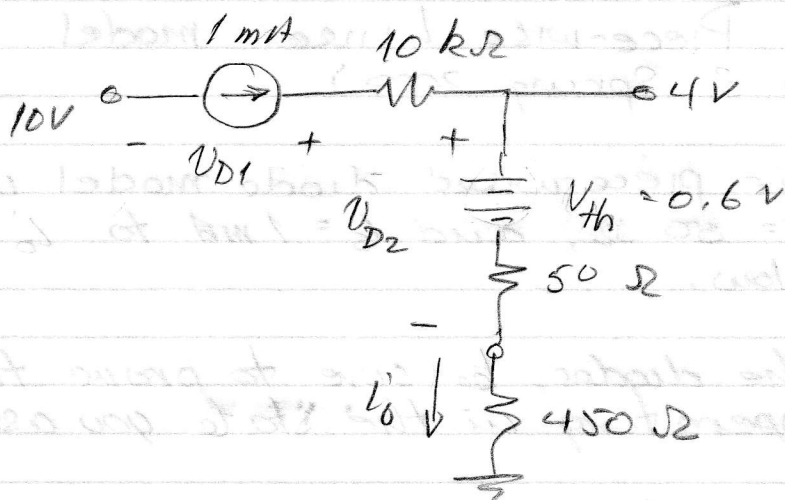 1 mA
10 kΩ
10V
4V
- V_D1 +
+
V_D2
V_th = 0.6 V
50 Ω
-
i_o
450 Ω